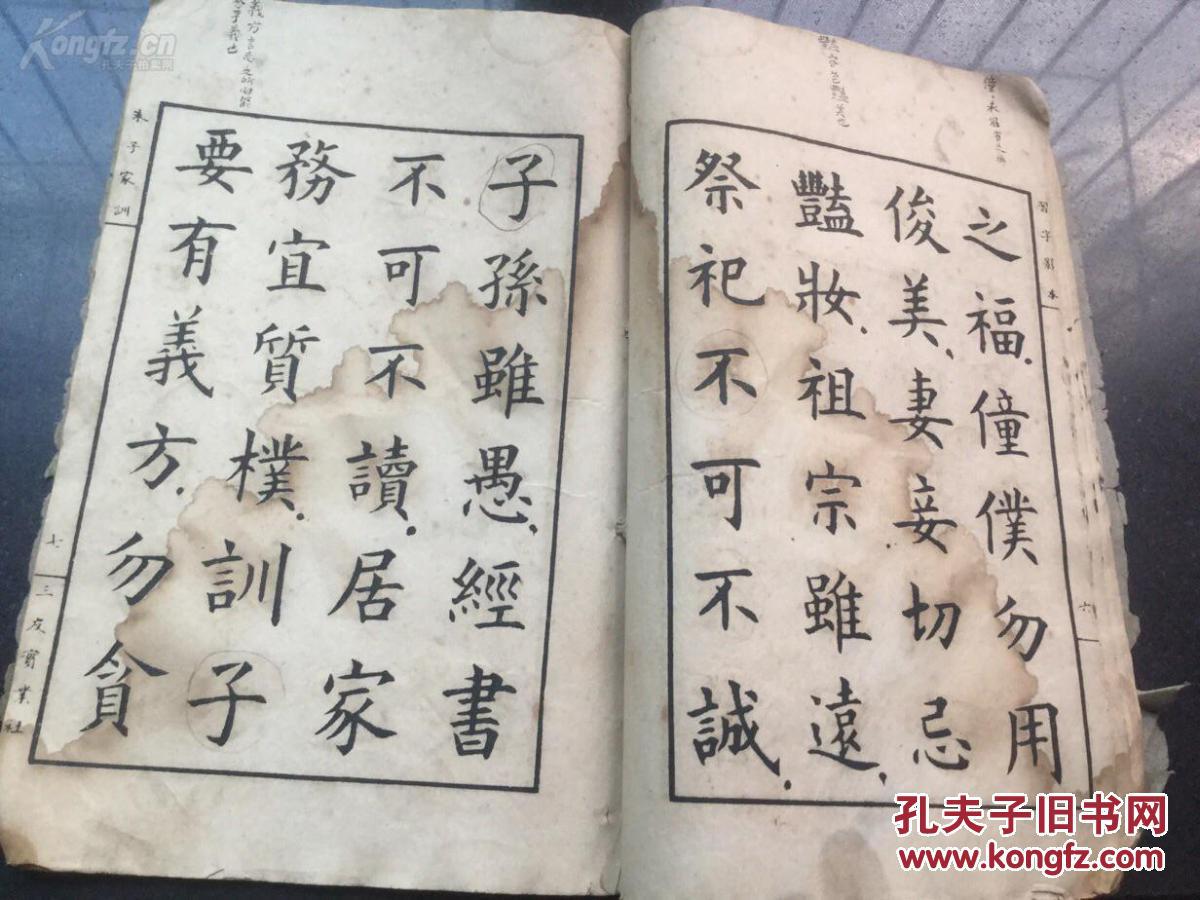 習字影本
六
之福、僮僕勿用
俊美、妻妾切忌
豔妝、祖宗雖遠、
祭祀不可不誠、
子孫雖愚、經書
不可不讀、居家
務宜質樸、訓子
要有義方、勿貪
朱子家訓
七
三友實業社
豔容色豔美也
Kongfz.cn
孔夫子拍卖网
孔夫子旧书网
www.kongfz.com